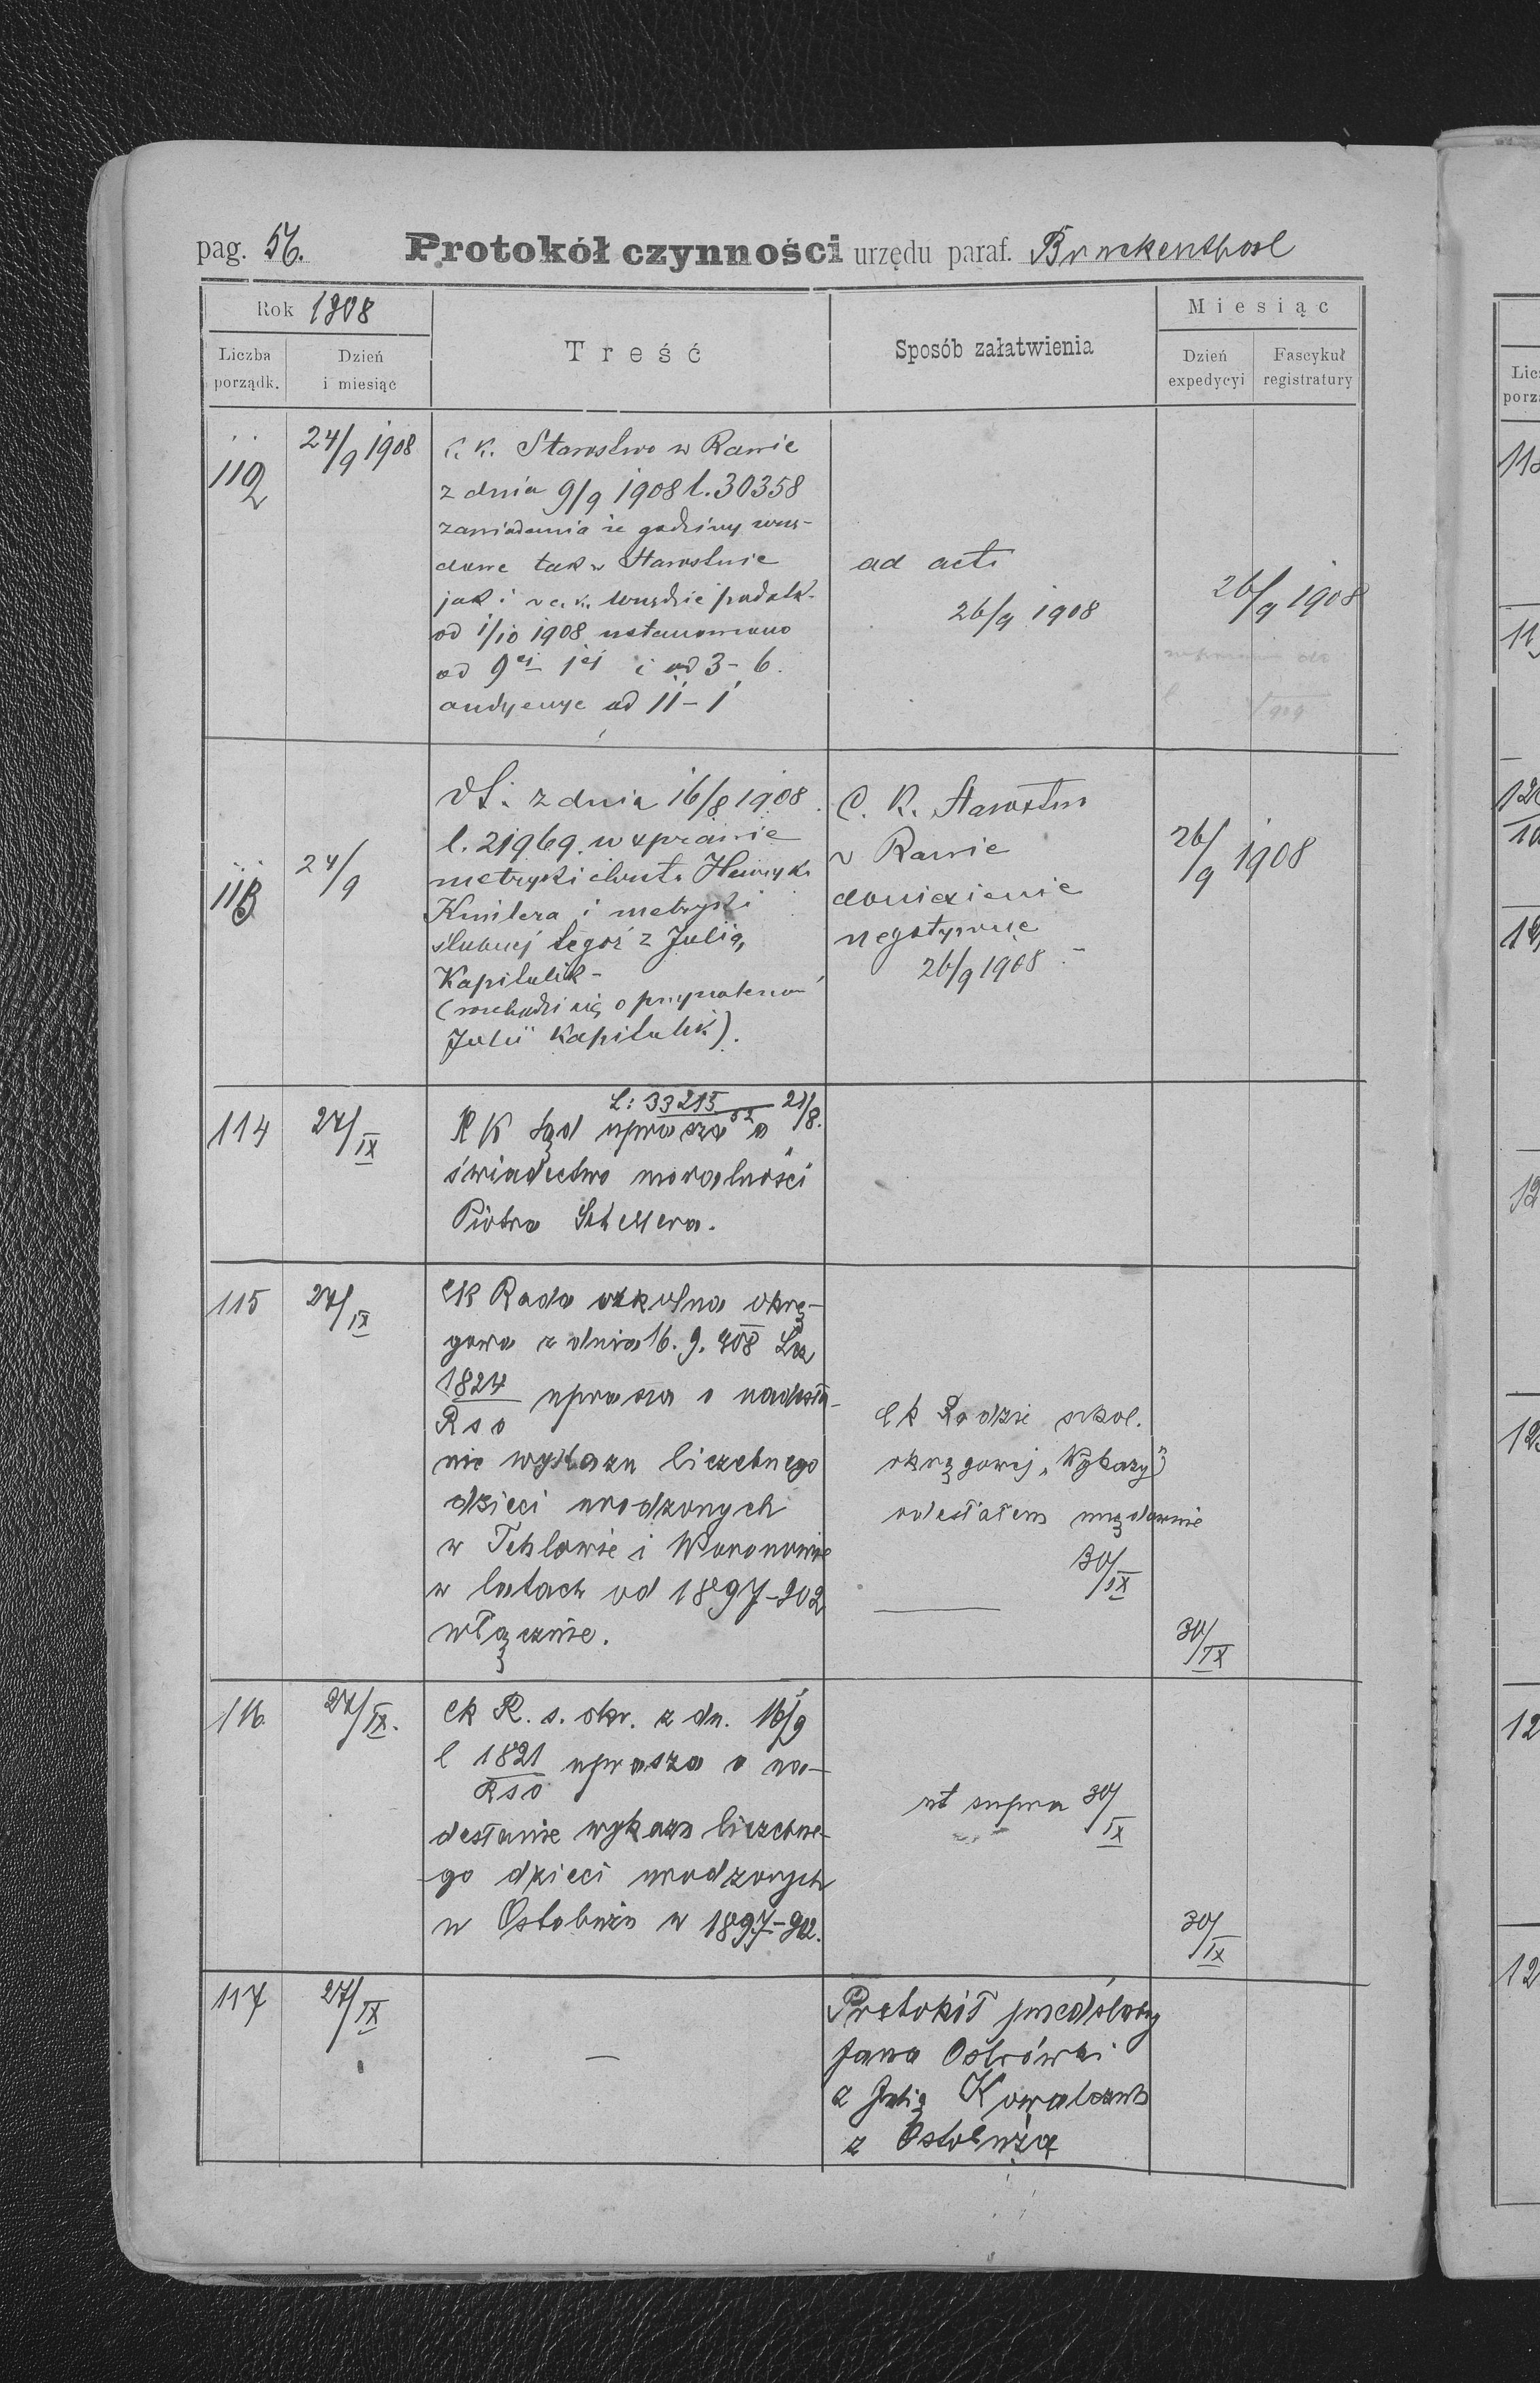 pag. 56. Protokół czynności urzędu paraf. Bruckenthal
Rok 1908
Liczba porządk.
Dzień i miesiąc
Treść
Sposób załatwienia
Miesiąc
Dzień expedycyi
Fascykuł registratury
112
24/9 1908
c. k. Starostwo w Rawie
z dnia 9/9 1908 l. 30358
zawiadamia że godziny urzę-
dowe tak w Starostwie
jak i w c. k. urzędzie podatk.
od 1/10 1908 ustanowiono
od 9ej 1ej i od 3-6.
audyencye od 11-1
ad acta
26/9 1908
26/9 1908
113
24/9
dt. z dnia 16/8 1908
l. 21969. w sprawie
metryki chrztu Henryka
i metryki
ślubnej tegoż z Julią
Kapitulik-
(rozchodzi się o
Julii Kapitulik).
C. K. Starostwu
w Rawie
doniesienie
negatywne
26/9 1908
26/9 1908
114
27/IX
L: 33215 21/8.
K Sąd uprasza o
świadectwo moralności
Piotra
115
27/IX
ck Rada szkolna okrę-
gowa z dnia 16. 9. 908
1824 uprasza o nadesła-
Rso
nie wykazu liczebnego
dzieci urodzonych
w Tehlowie i Woronowie
w latach od 1897-902
włącznie.
ck Radzie szkol.
okręgowej „Wykazy"
odesłałem urzędownie
30/IX
30/IX
116.
27/IX.
ck R. s. okr. z dn. 16/9
l 1821 uprasza o na-
Rso
desłanie wykazu liczebne-
go dzieci urodzonych
w Ostobużu w 1897-902.
ut supra 30/IX
30/IX
117
27/IX
—
Protokół przedślubny
Jana Ostrówki
z Julią Kowalczuk
z Ostobuża